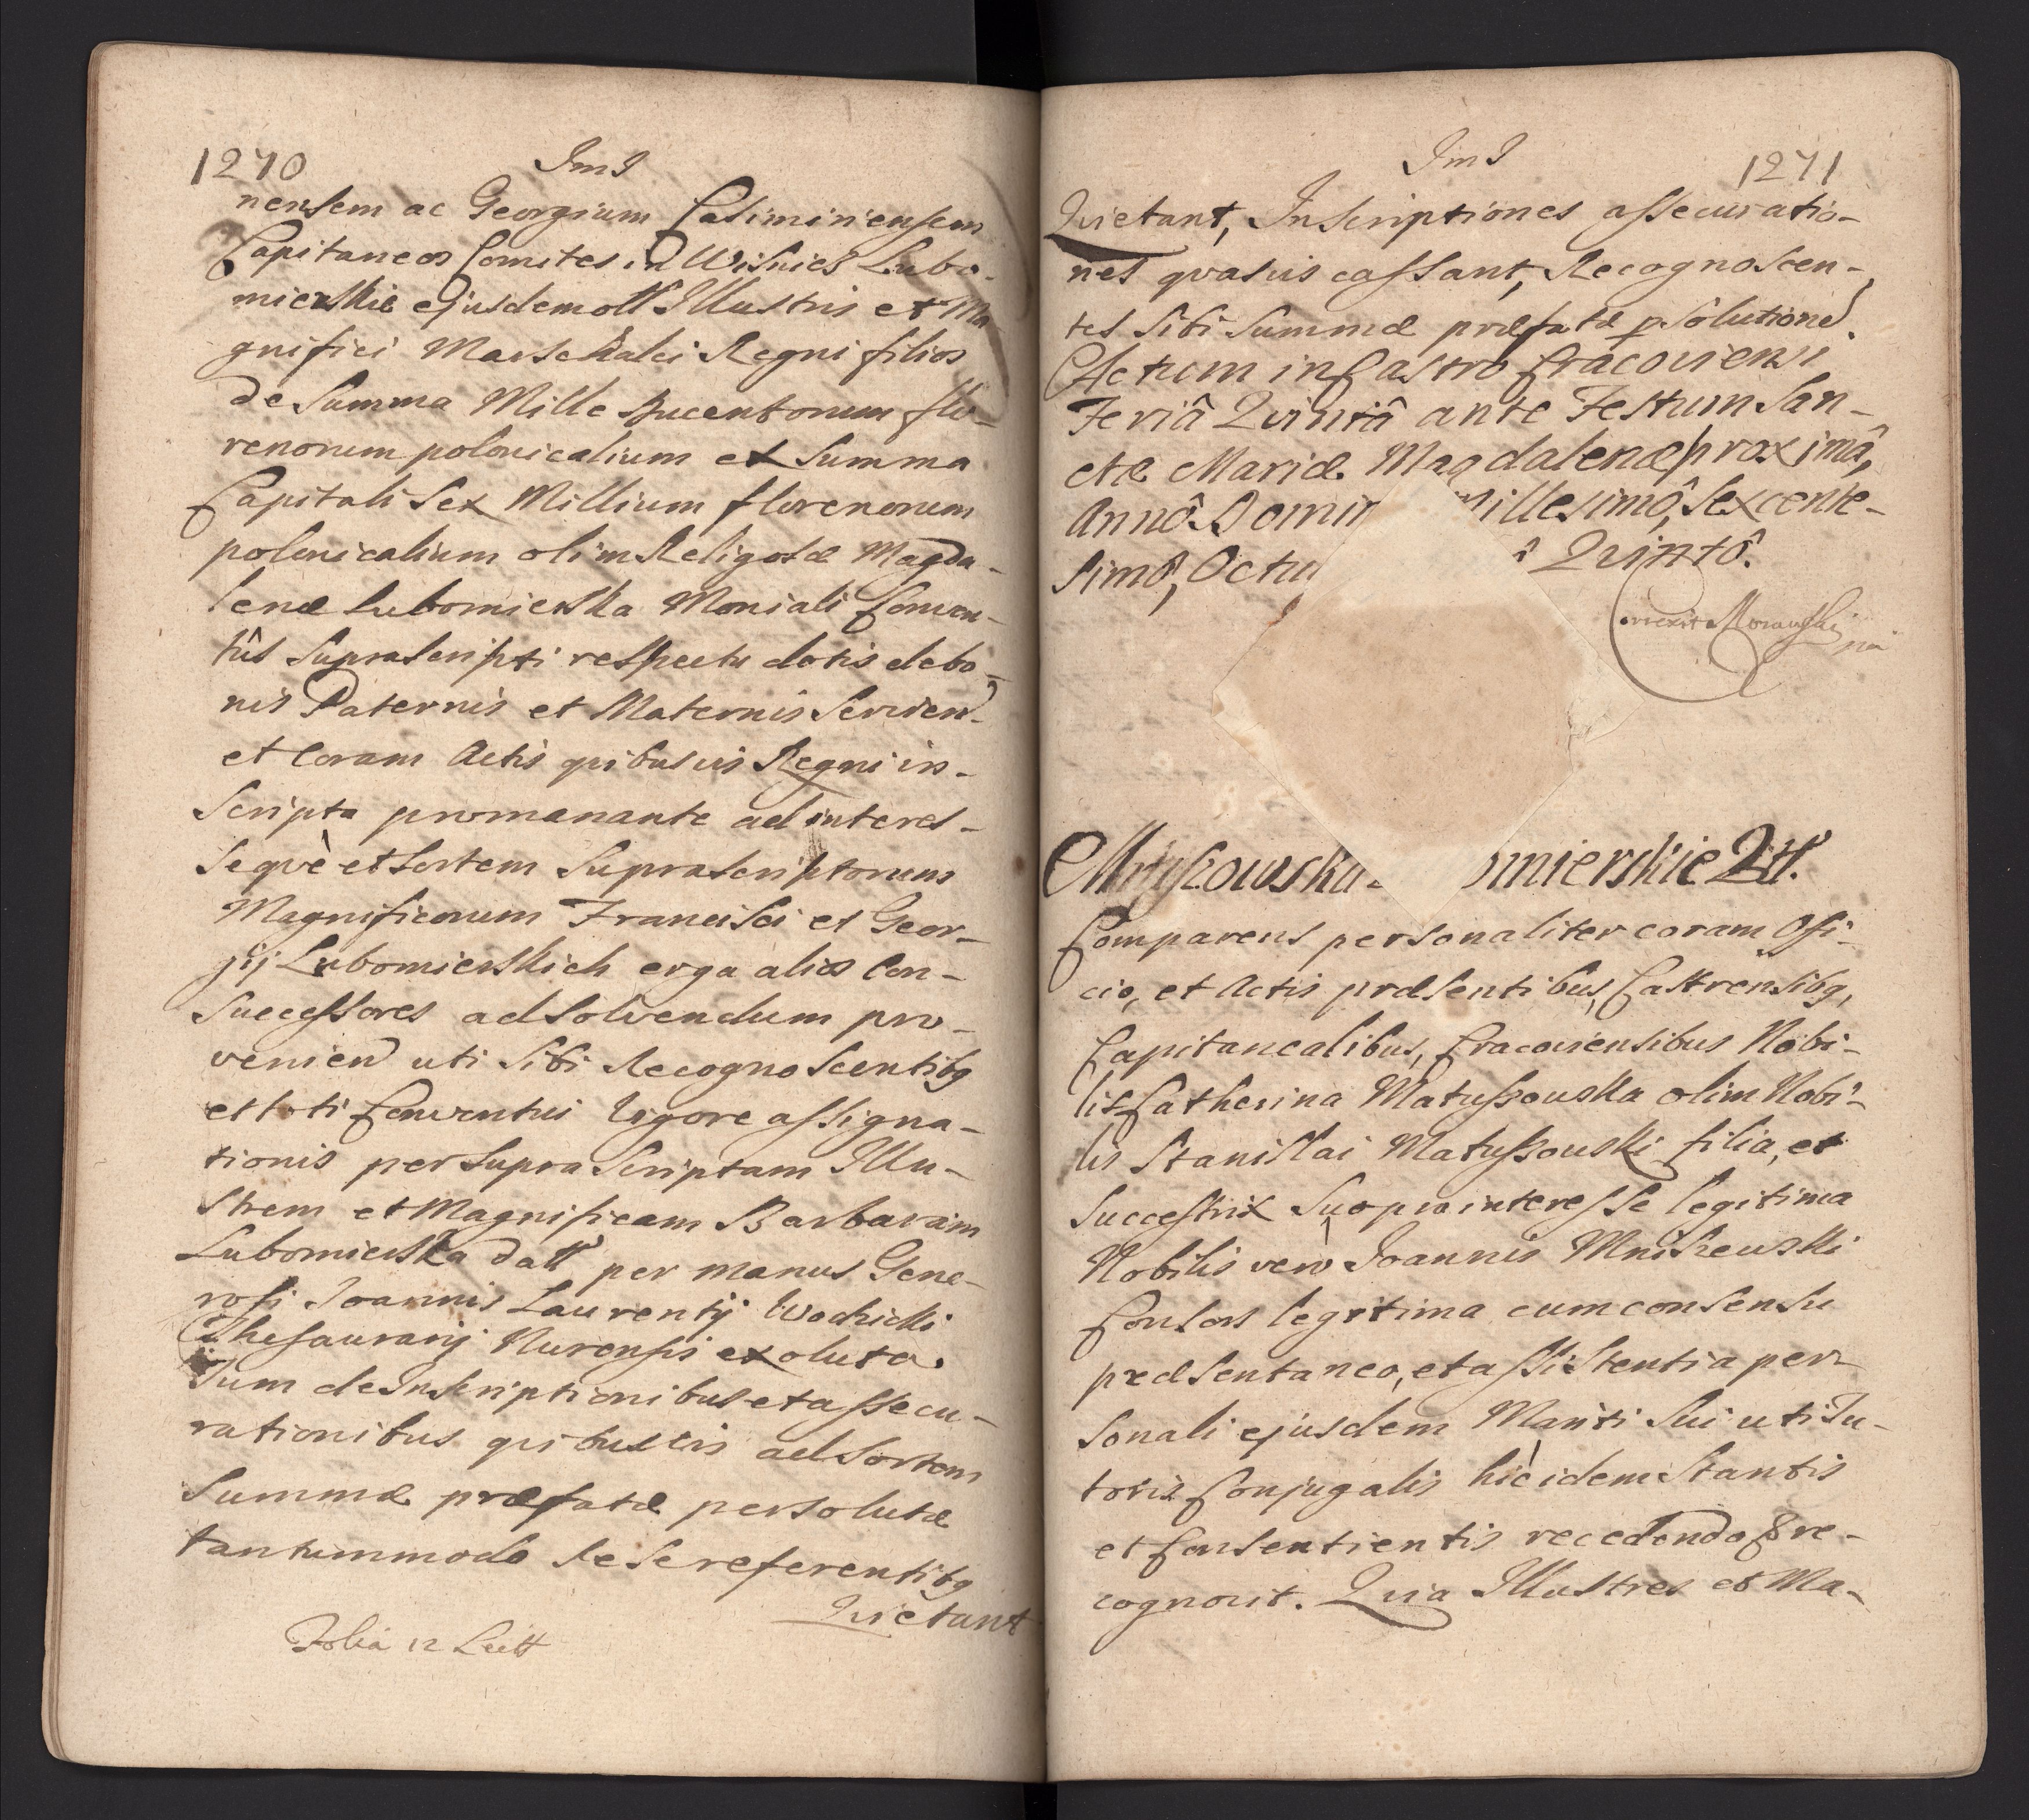 1270
nensem ac Georgium Casimiriensem
Capitaneos Comites in Wisnicz Lubo-
mierskie ejusdem olim Illustris et Ma-
gnifici Marschalci Regni filios
de Summa Mille Ducentorum flo-
renorum polonicalium et Summa
Capitali Sex Millium florenorum
polonicalium olim Religosæ Magda-
lenæ Lubomierska Moniali Conven-
tûs Suprascripti respectu dotis de bo-
nis Paternis et Maternis Servien
et Coram Actis quibusvis Regni in-
scripta promanante ad interes-
seqvè et Sortem Suprascriptorum
Magnificorum Francisci et Geor-
gij Lubomierskich erga alios Con-
Successores ad Solvendum pro-
venien uti Sibi Recognoscentibq
et toti Conventui Vigore assigna-
tionis per Supra Scriptam Illu-
strem et Magnificam Barbaram
Lubomierska datt per manus Gene-
rosi Joannis Laurentij Wodzicki
Thesaurarij Nurensis exoluta.
Tum de Inscriptionibus et assecu-
rationibus quibusvis ad Sortem
Summæ præfatæ persolutæ
tantummodo Se Se referentibq
Quietant
Folia 12 Lectt
1271
Quietant, Inscriptiones assecuratio-
nes qvasvis cassant, Recognoscen-
tes Sibi Summæ præfatæ psolutione.
Actum in Castro Cracoviensi
Feriâ Quintâ ante Festum San-
ctæ Mariæ Magdalenæ proximâ,
Annô Domin illesimô, Sexcente-
simô, Octu ô Quintô.
Mat̃ysowska omierskie Qtt.
Comparens personaliter coram Offi-
cio, et Actis præsentibus, Castrensibq,
Capitanealibus, Cracoviensibus Nobi-
lis Catherina Matyssowska olim Nobi-
lis Stanislai Matyssowski filia, et
Succestrix Suo pro interesse legitima
Nobilis verò Joannis Mniszewski
Consors legitima cum consensu
præsentaneo, et assistentia per-
sonali ejusdem Mariti Sui uti Tu-
toris Conjugalis hìc idem Stantis
et Consentientis recedendo & re-
cognovit. Quia Illustres et Ma-